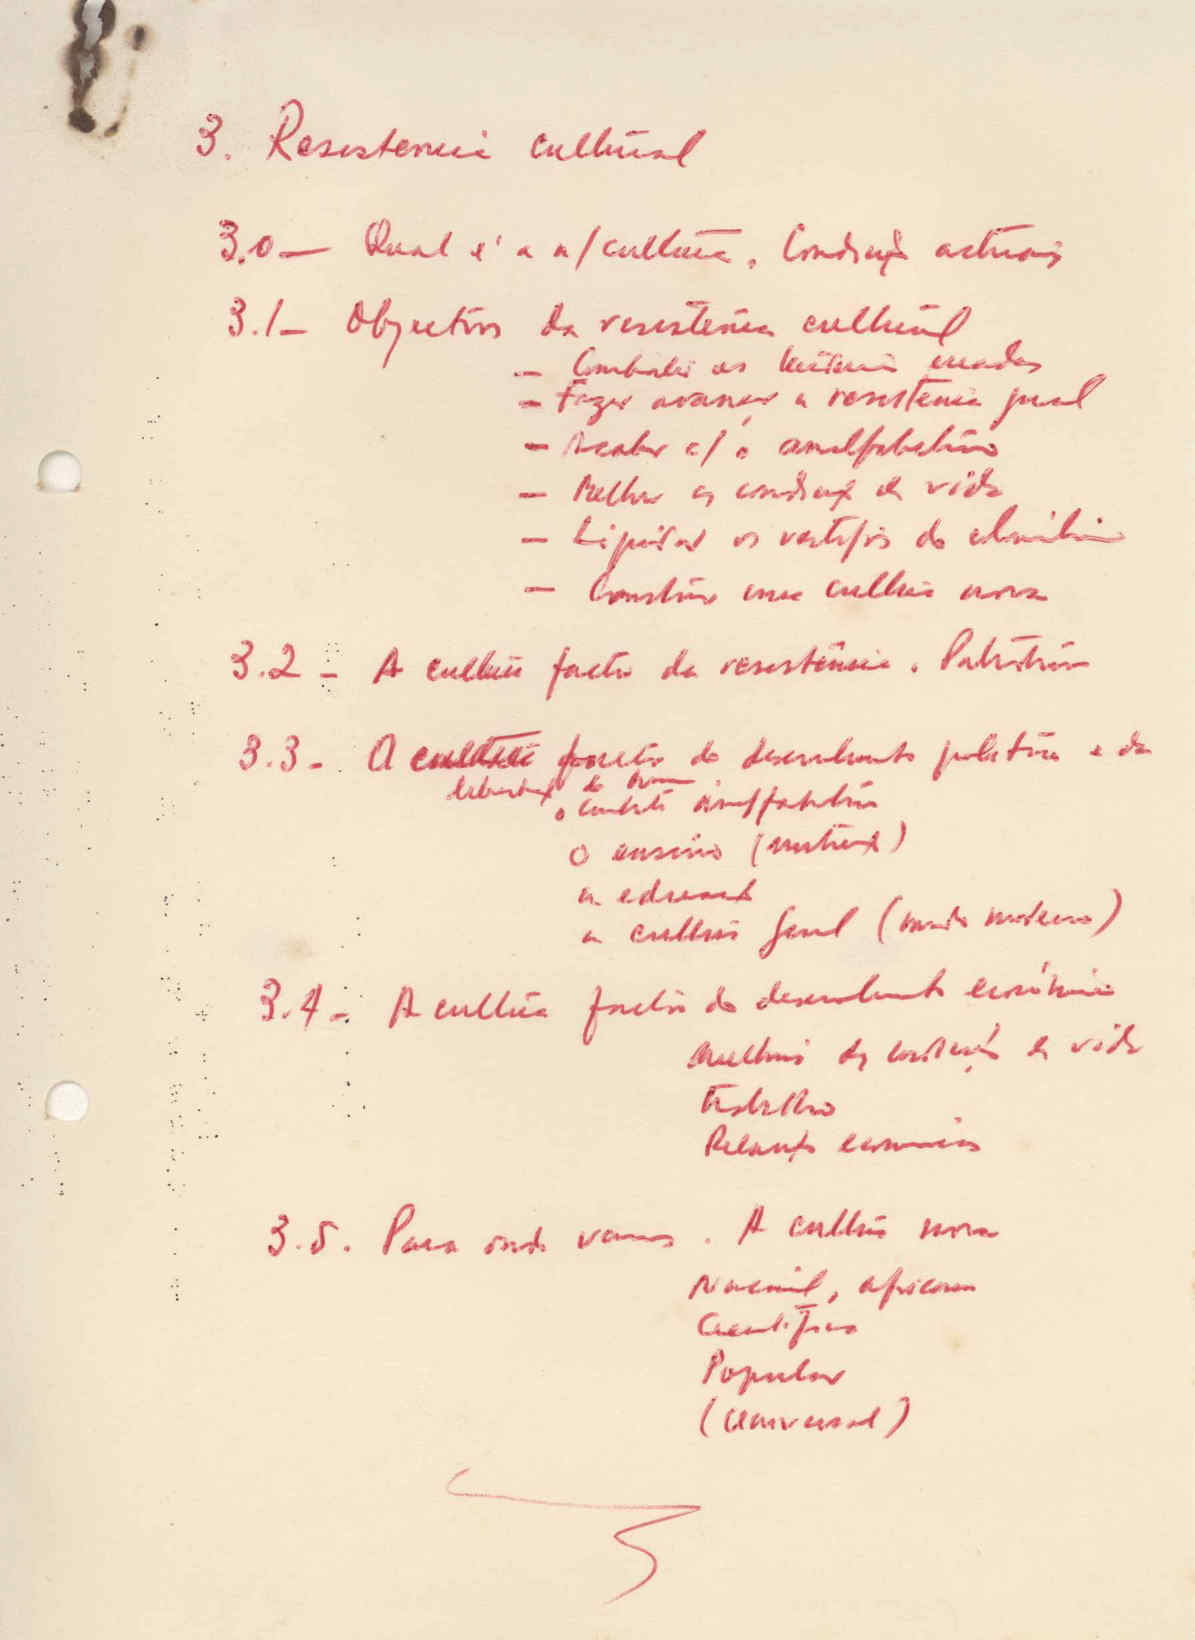 3. Resistencia cultural
3.0 — Qual é a n/cultura. Condições actuais
3.1 — Objectivos da resistência cultural
— Combater as criadas
— Fazer avançar a resistencia geral
— Acabar c/ o analfabetismo
— Melhorar as condições de vida
— Liquidar os vestígios do
— Construir uma cultura nova
3.2 — A cultura factor da resistência. Patriotismo
3.3 - A cultura factor do desenvolvimento político e da
libertação do homem
o combate analfabetismo
O ensino (instrução)
a educação
a cultura geral (mundo moderno)
3.4 - A cultura factor do desenvolvimento económico
Melhoria das condições de vida
Trabalho
Relações económicas
3.5. Para onde vamos. A cultura nova
Nacional, africana
Científica
Popular
(Universal)